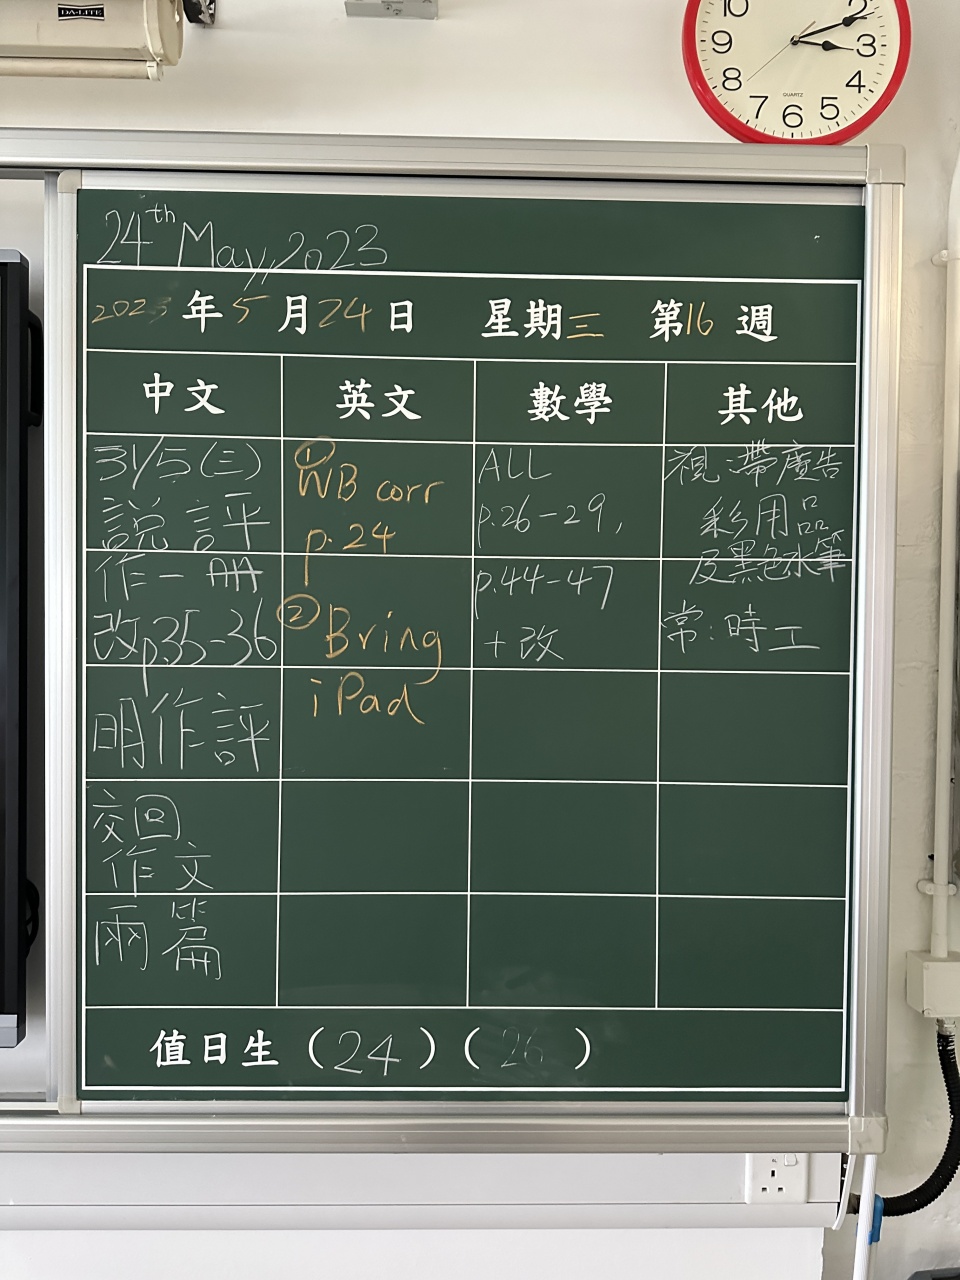 DA-LITE
10
2
9
3
8
4
7
6
5
QUARTZ
24th May, 2023
2023年5月24日 星期三 第16週
中文
31/5(三)
說評
作一冊
改p.35-36
明作評
交回
作文
兩篇
英文
① WB corr
p.24
② Bring
iPad
數學
ALL
p.26-29,
p.44-47
+改
其他
視:帶廣告
彩用品
及黑色水筆
常:時工
值日生(24)(26)